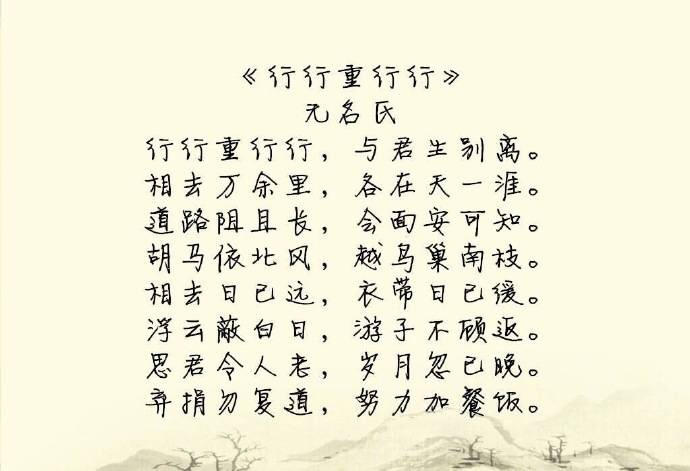 《行行重行行》
无名氏
行行重行行，与君生别离。
相去万余里，各在天一涯。
道路阻且长，会面安可知。
胡马依北风，越鸟巢南枝。
相去日已远，衣带日已缓。
浮云蔽白日，游子不顾返。
思君令人老，岁月忽已晚。
弃捐勿复道，努力加餐饭。